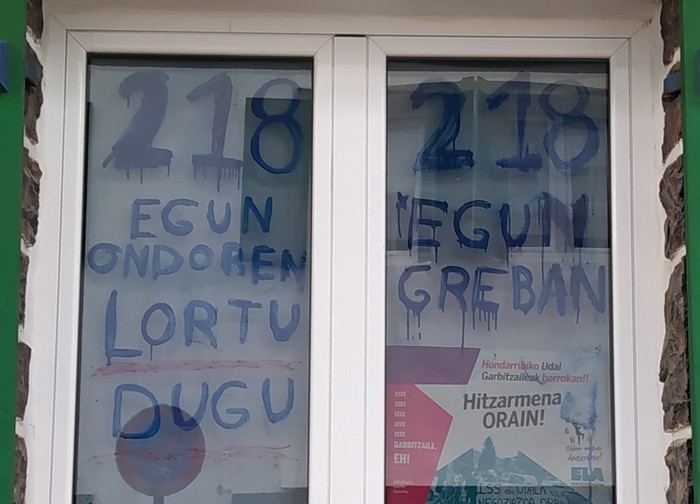 218
EGUN
ONDOREN
LORTU
DUGU
218
EGUN
GREBAN
Hondarribiko Udal
Garbitzaileak borrokan!!
Hitzarmena
ORAIN!
GARBITZAILE,
EH!
ELA
ISS UDALA
NEGOZIAZIOA ORAIN